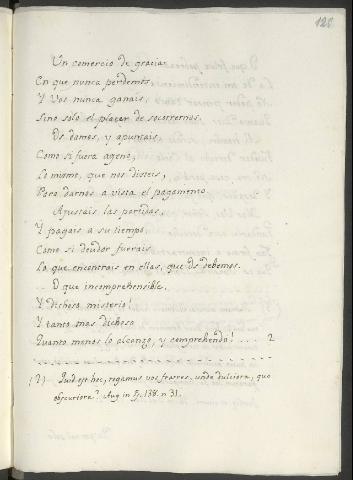 128
Un comercio de gracia,
En que nunca perdemos,
Y Vos nunca ganais,
Sino solo el placer de socorrernos.
Os damos, y apuntais
Como si fuera ageno,
Lo mismo, que nos disteis,
Para darnos a vista el pagamento
Ajustais las partidas,
Y pagais a su tiempo,
Como si deudor fuerais
Lo que encontrais en ellas, que Os debemos.
O que incomprehensible,
Y dichoso misterio!
Y tanto mas dichoso
Quanto menos lo alcanzo, y comprehendo! .... 2
(2) Quid est hoc, rogamus vos fratres, unde dulciora, quo
obscuriora? Aug in ps. 138. n 31.